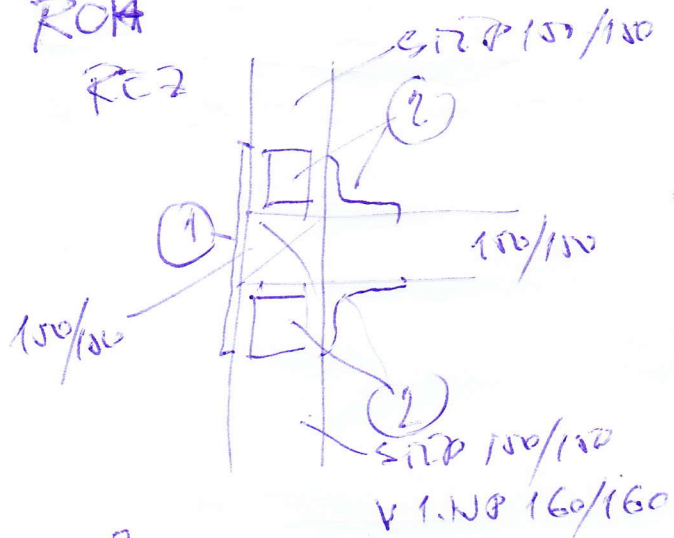 ROH
REZ
STŘP 150/150
2
1
150/150
150/150
2
STŘP 150/150
V 1.NP 160/160